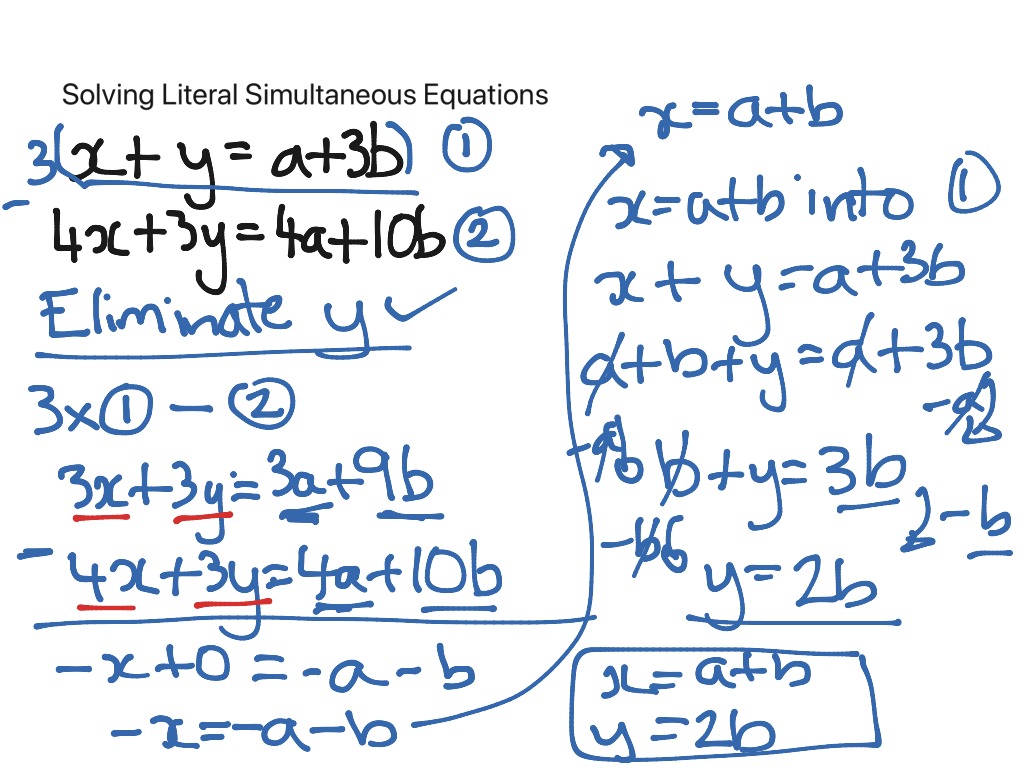 Solving Literal Simultaneous Equations
3(x + y = a+3b) ①
-
4x+3y=4a+10b ②
Eliminate y ✓
3×① - ②
3x+3y=3a+9b
- 4x+3y=4a+10b
-x+0 = -a-b
-x=-a-b
x=a+b
x=a+b into ①
x + y=a+3b
a+b+y=a+3b
-a
b+y=3b
-b
-b
y=2b
x=a+b
y=2b